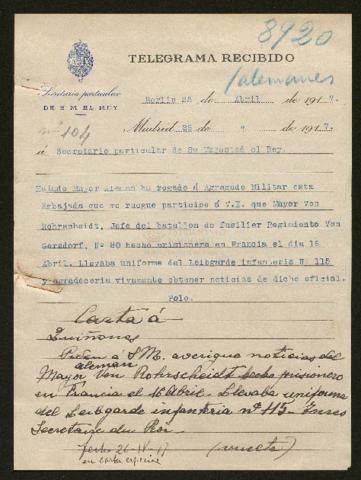 8920
TELEGRAMA RECIBIDO
/alemanes
Secretaría particular
DE S. M. EL REY
Berlin 25 de Abril de 1917.
nº 104
Madrid 25 de " de 1917.
Secretario particular de Su Magestad el Rey.
Estado Mayor Aleman ha rogado á Agregado Militar esta
Embajada que yo ruegue participe á V.E. que Mayor Von
Rohrscheidt, Jefe del batallon de fusilier Regimiento Von
Gersdorf, Nº 80 hecho prisionero en Francia el dia 16
Abril. Llevaba uniforme del Leibgarde infanteria Nº 115
y agradeceria vivamente obtener noticias de dicho oficial.
Polo.
Carta á
Quiñones
Piden a S.M. averigüe noticias del
aleman
Mayor Von Rohrscheidt hecho prisionero
en Francia el 16 Abril. Llevaba uniforme
del Leibgarde infanteria nº 115.
Secretaire du Roi.
fecho 26-IV-17 (vuelta)
en carta